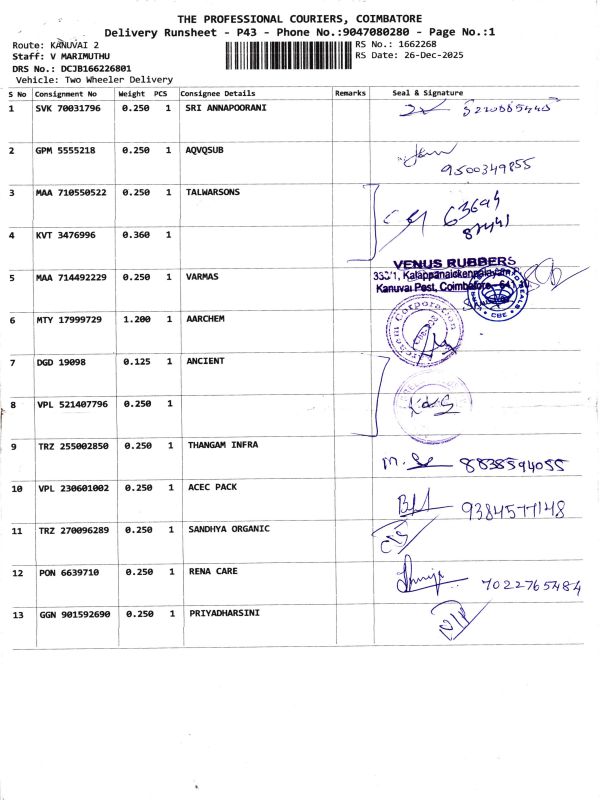 THE PROFESSIONAL COURIERS, COIMBATORE
Delivery Runsheet - P43 - Phone No.:9047080280 - Page No.:1
Route: KANUVAI 2
RS No.: 1662268
Staff: V MARIMUTHU
RS Date: 26-Dec-2025
DRS No.: DCJB166226801
Vehicle: Two Wheeler Delivery
S No Consignment No Weight PCS Consignee Details Remarks Seal & Signature
1 SVK 70031796 0.250 1 SRI ANNAPOORANI
2 GPM 5555218 0.250 1 AQVQSUB
9500349855
3 MAA 710550522 0.250 1 TALWARSONS
63694
87441
4 KVT 3476996 0.360 1
VENUS RUBBERS
5 MAA 714492229 0.250 1 VARMAS
Kanuvai Post, Coimbatore - 641
CBE
6 MTY 17999729 1.200 1 AARCHEM
Corporation
7 DGD 19098 0.125 1 ANCIENT
8 VPL 521407796 0.250 1
9 TRZ 255002850 0.250 1 THANGAM INFRA
8838594055
10 VPL 230601002 0.250 1 ACEC PACK
9384577148
11 TRZ 270096289 0.250 1 SANDHYA ORGANIC
12 PON 6639710 0.250 1 RENA CARE
7022765484
13 GGN 901592690 0.250 1 PRIYADHARSINI